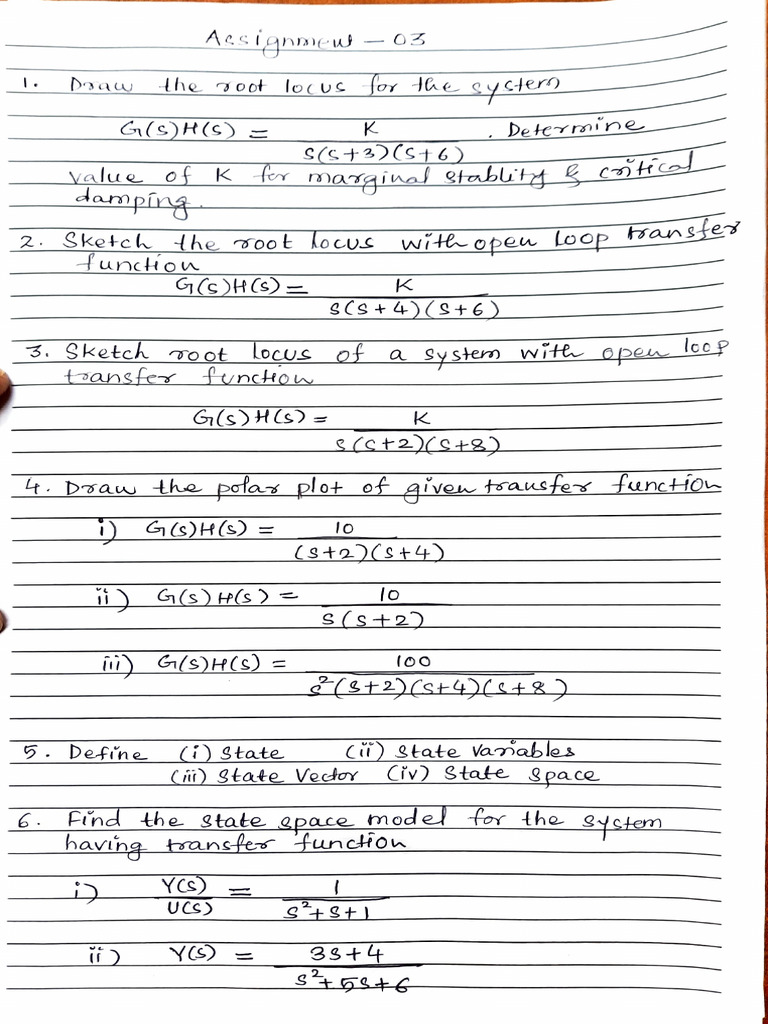 Assignment - 03
1. Draw the root locus for the system
G(s)H(s) = K / s(s+3)(s+6) . Determine
value of K for marginal stablity & critical
damping.
2. Sketch the root locus with open loop transfer
function
G(s)H(s) = K / s(s+4)(s+6)
3. Sketch root locus of a system with open loop
transfer function
G(s)H(s) = K / s(s+2)(s+8)
4. Draw the polar plot of given transfer function
i) G(s)H(s) = 10 / (s+2)(s+4)
ii) G(s)H(s) = 10 / s(s+2)
iii) G(s)H(s) = 100 / s²(s+2)(s+4)(s+8)
5. Define (i) State (ii) State Variables
(iii) State Vector (iv) State Space
6. Find the state space model for the system
having transfer function
i) Y(s)/U(s) = 1 / s²+s+1
ii) Y(s) = 3s+4 / s²+5s+6